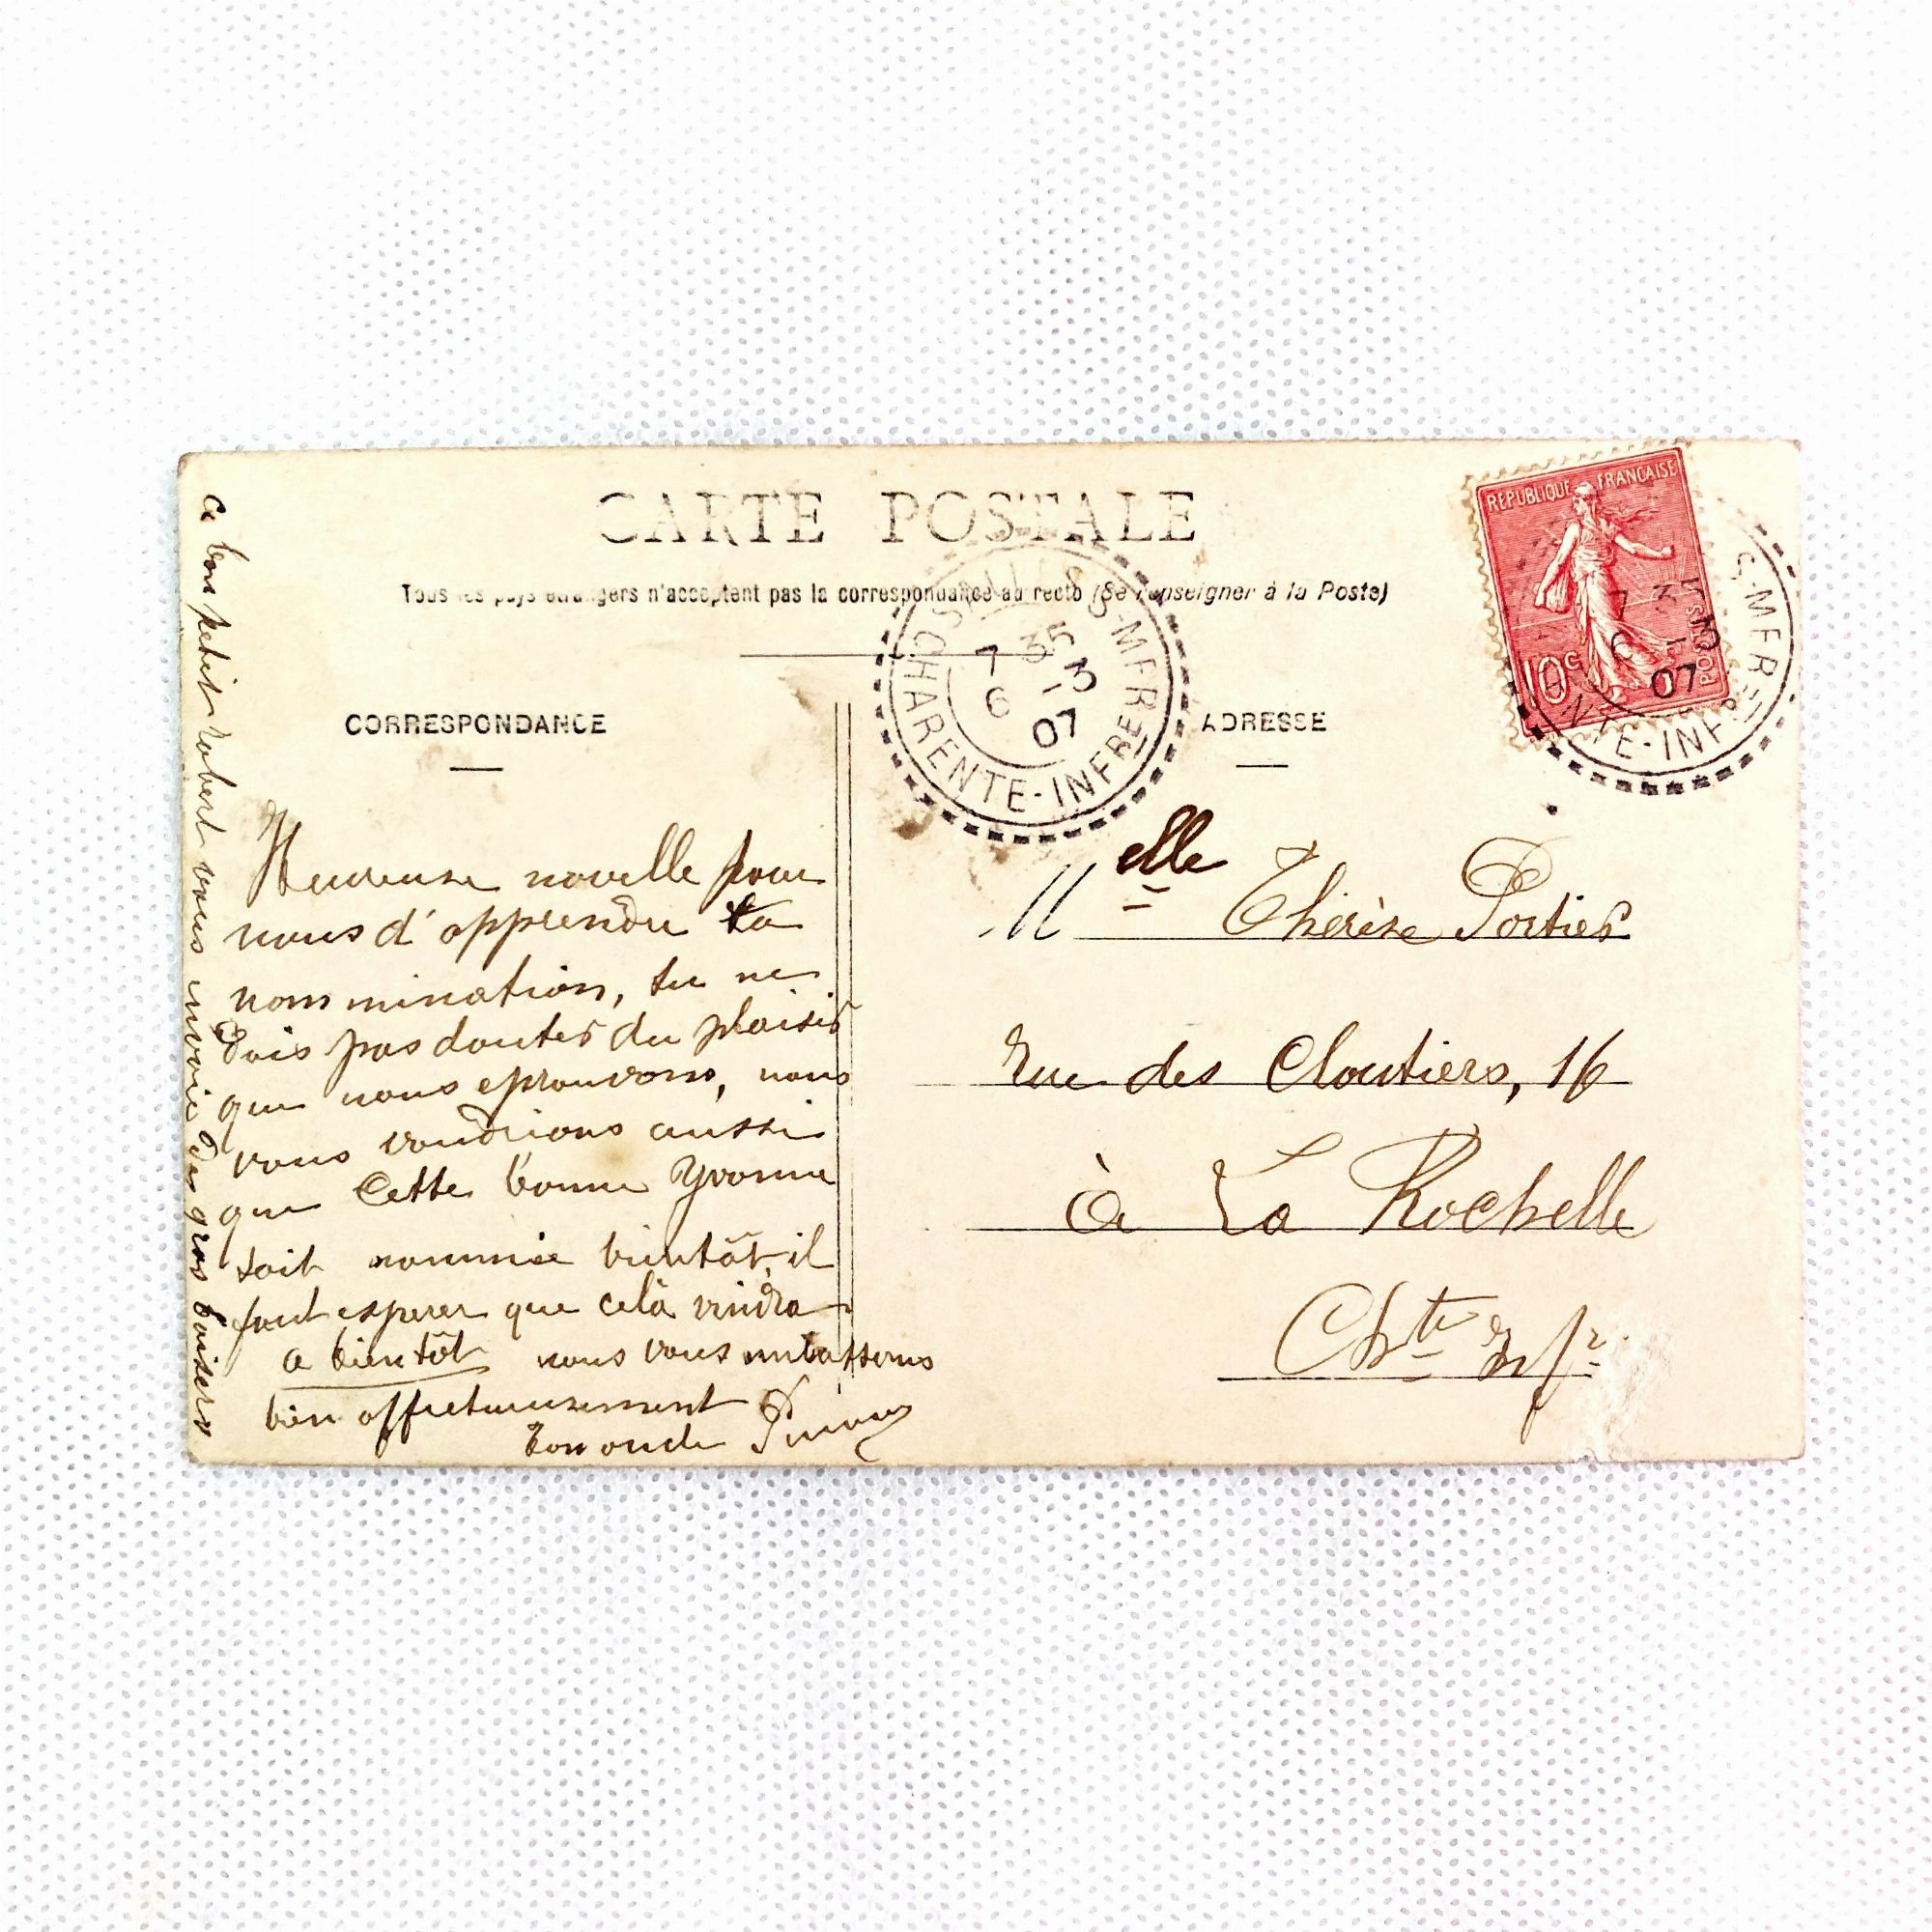 CARTE POSTALE
Tous les pays étrangers n'acceptent pas la correspondance au recto (Se renseigner à la Poste)
CORRESPONDANCE
ADRESSE
REPUBLIQUE FRANCAISE
POSTES
10c
7 35
6 -3
07
CHARENTE-INFRE
S-MER
7 3
6 -3
07
NTE-INFRE
Heureuse novelle pour
nous d'apprendre ta
nommination, tu ne
dois pas douter du plaisir
que nous eprouvons, nous
vous voudrions aussi
que Cette bonne Yvonne
soit nommée bientôt, il
faut esperer que celà viendra
a bientôt nous vous embrassons
bien affectueusement
Ton oncle
Ce bon petit robert vous envoie des gros baisers
Melle Thérèse Portier
Rue des Cloutiers, 16
à La Rochelle
Chte Infre